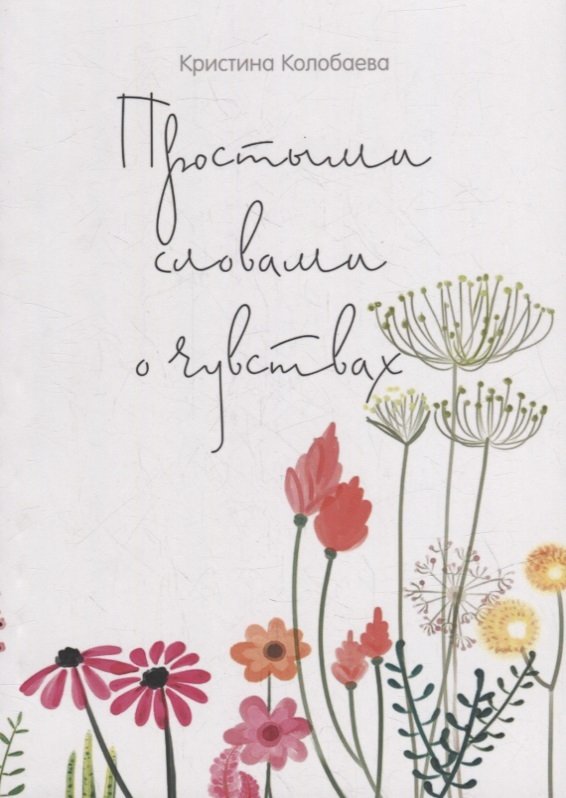 Кристина Колобаева
Простыми
словами
о чувствах